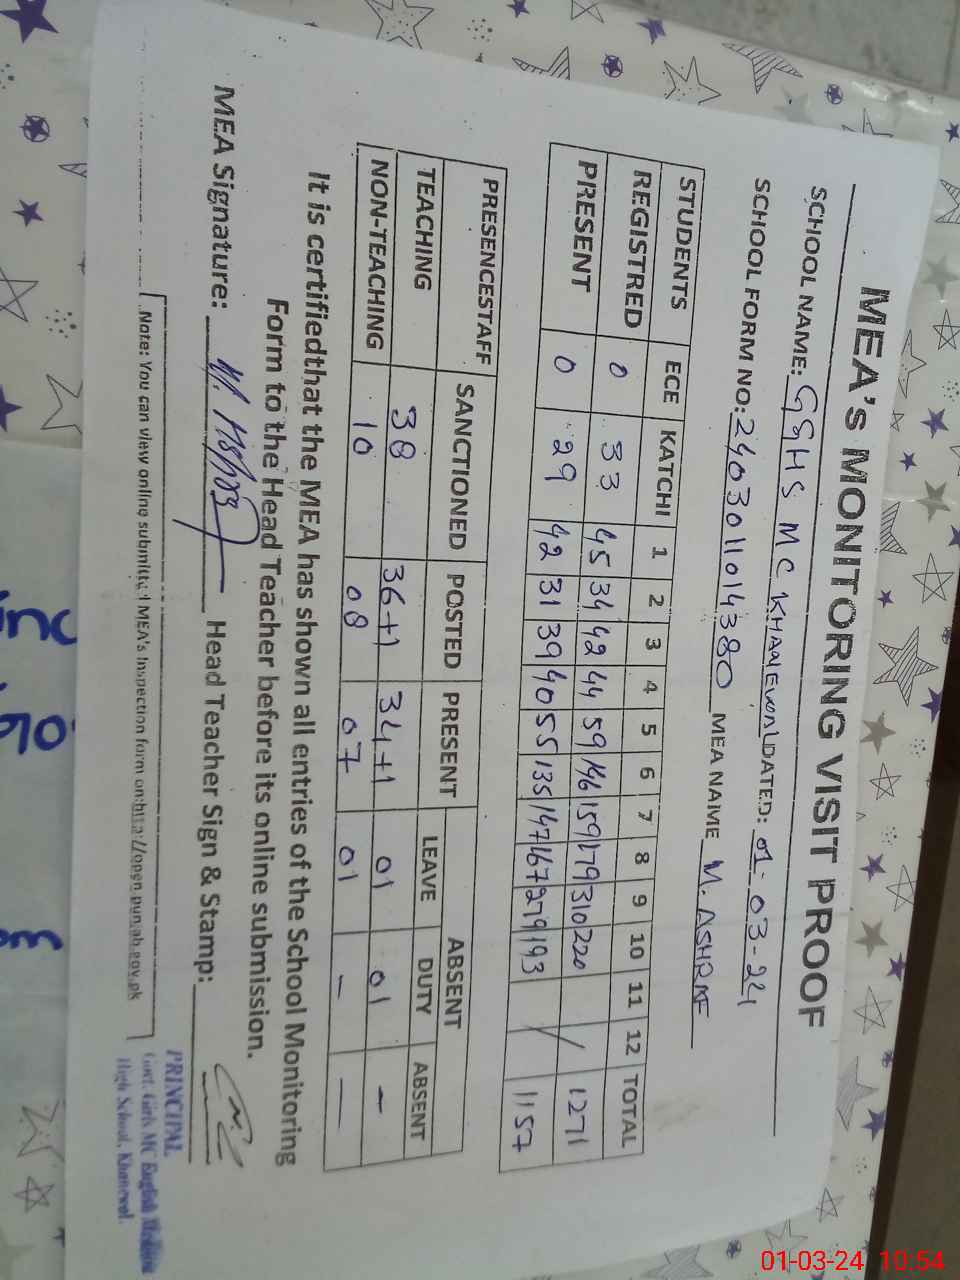 MEA's MONITORING VISIT PROOF
SCHOOL NAME: GGHS MC KHANEWAL DATED: 01-03-24
SCHOOL FORM NO: 2403011014380 MEA NAME M. ASHRAF
STUDENTS ECE KATCHI 1 2 3 4 5 6 7 8 9 10 11 12 TOTAL
REGISTRED 0 33 45 34 42 44 59 146 159 179 310 220 / 1271
PRESENT 0 29 42 31 39 40 55 135 147 167 279 193 1157
PRESENCESTAFF SANCTIONED POSTED PRESENT ABSENT
LEAVE DUTY ABSENT
TEACHING 38 36+1 34+1 01 01 -
NON-TEACHING 10 08 07 01 - -
It is certifiedthat the MEA has shown all entries of the School Monitoring
Form to the Head Teacher before its online submission.
MEA Signature: Head Teacher Sign & Stamp:
PRINCIPAL
Govt. Girls MC English Medium
High School, Khanewal.
Note: You can view online submitted MEA's Inspection form on:http://open.punjab.gov.pk
01-03-24 10:54